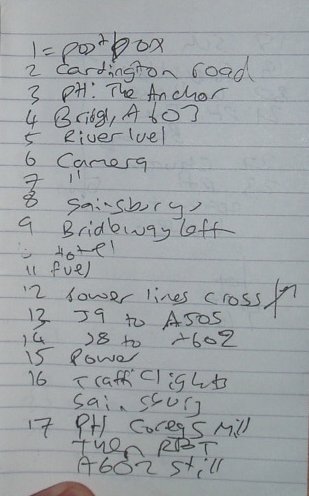 1 = post box
2 Cardington road
3 PH: The Anchor
4 Bridge, A603
5 River Ivel
6 Camera
7 "
8 Sainsburys
9 Bridleway left
Hotel
11 fuel
12 Power lines cross
13 J9 to A505
14 J8 to A602
15 Power
16 Traffic lights
Sainsbury
17 PH Coreys Mill
then RBT
A602 still